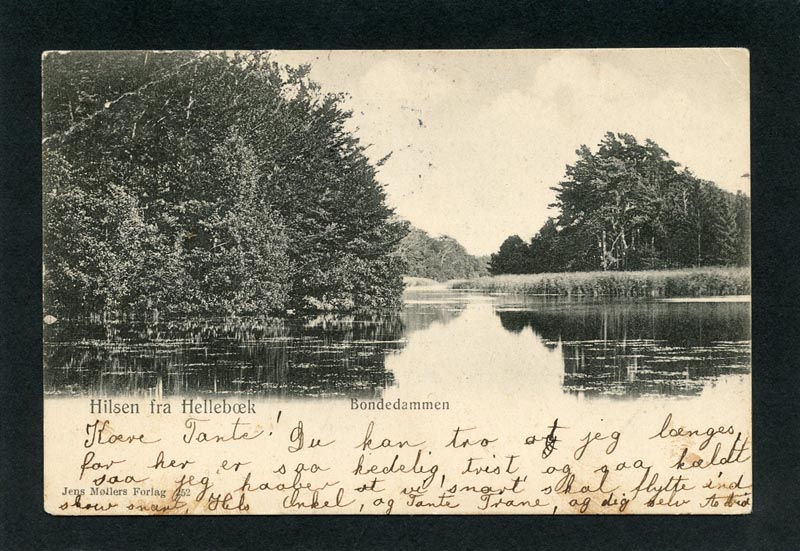 Hilsen fra Hellebœk
Bondedammen
Kære Tante! Du kan tro at jeg længes,
for her er saa kedelig trist og saa koldt
saa jeg haaber at vi snart skal flytte ind
Jens Møllers Forlag 252
snart, Hils Onkel, og Tante Trane, og dig selv